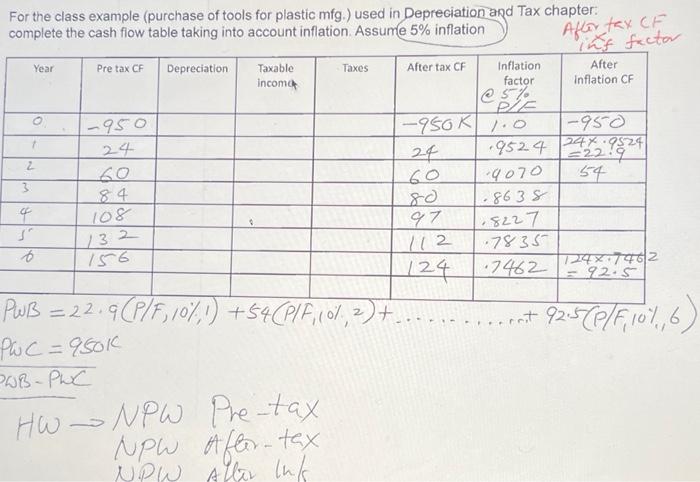 For the class example (purchase of tools for plastic mfg.) used in Depreciation and Tax chapter:
complete the cash flow table taking into account inflation. Assume 5% inflation
After tax CF
x
inf factor
Year Pre tax CF Depreciation Taxable income Taxes After tax CF Inflation factor @ 5% P/F After inflation CF
0 -950 -950K 1.0 -950
1 24 24 .9524 24x.9524 =22.9
2 60 60 .9070 54
3 84 80 .8638
4 108 97 .8227
5 132 112 .7835
6 156 124 .7462 124x.7462 = 92.5
PWB = 22.9(P/F,10%,1) + 54(P/F,10%,2)+...........+ 92.5(P/F,10%,6)
PWC = 950K
PWB-PWC
HW → NPW Pre-tax
NPW After-tax
NPW After Inf